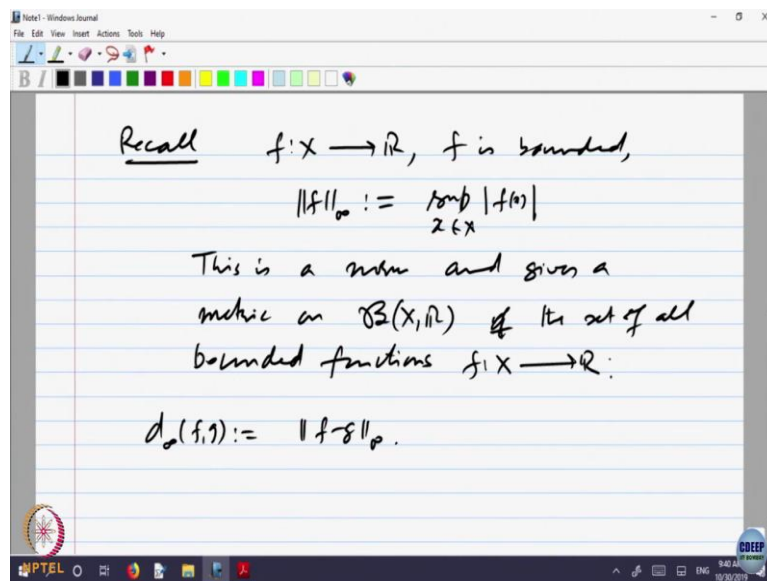 Note1 - Windows Journal
File Edit View Insert Actions Tools Help
B I
Recall f: X → ℝ, f is bounded,
||f||∞ := sup |f(x)|
x ∈ X
This is a norm and gives a
metric on ℬ(X, ℝ) the set of all
bounded functions f: X → ℝ:
d∞(f, g) := ||f - g||∞.
NPTEL
CDEEP
IIT BOMBAY
ENG
9:40 AM
10/30/2019